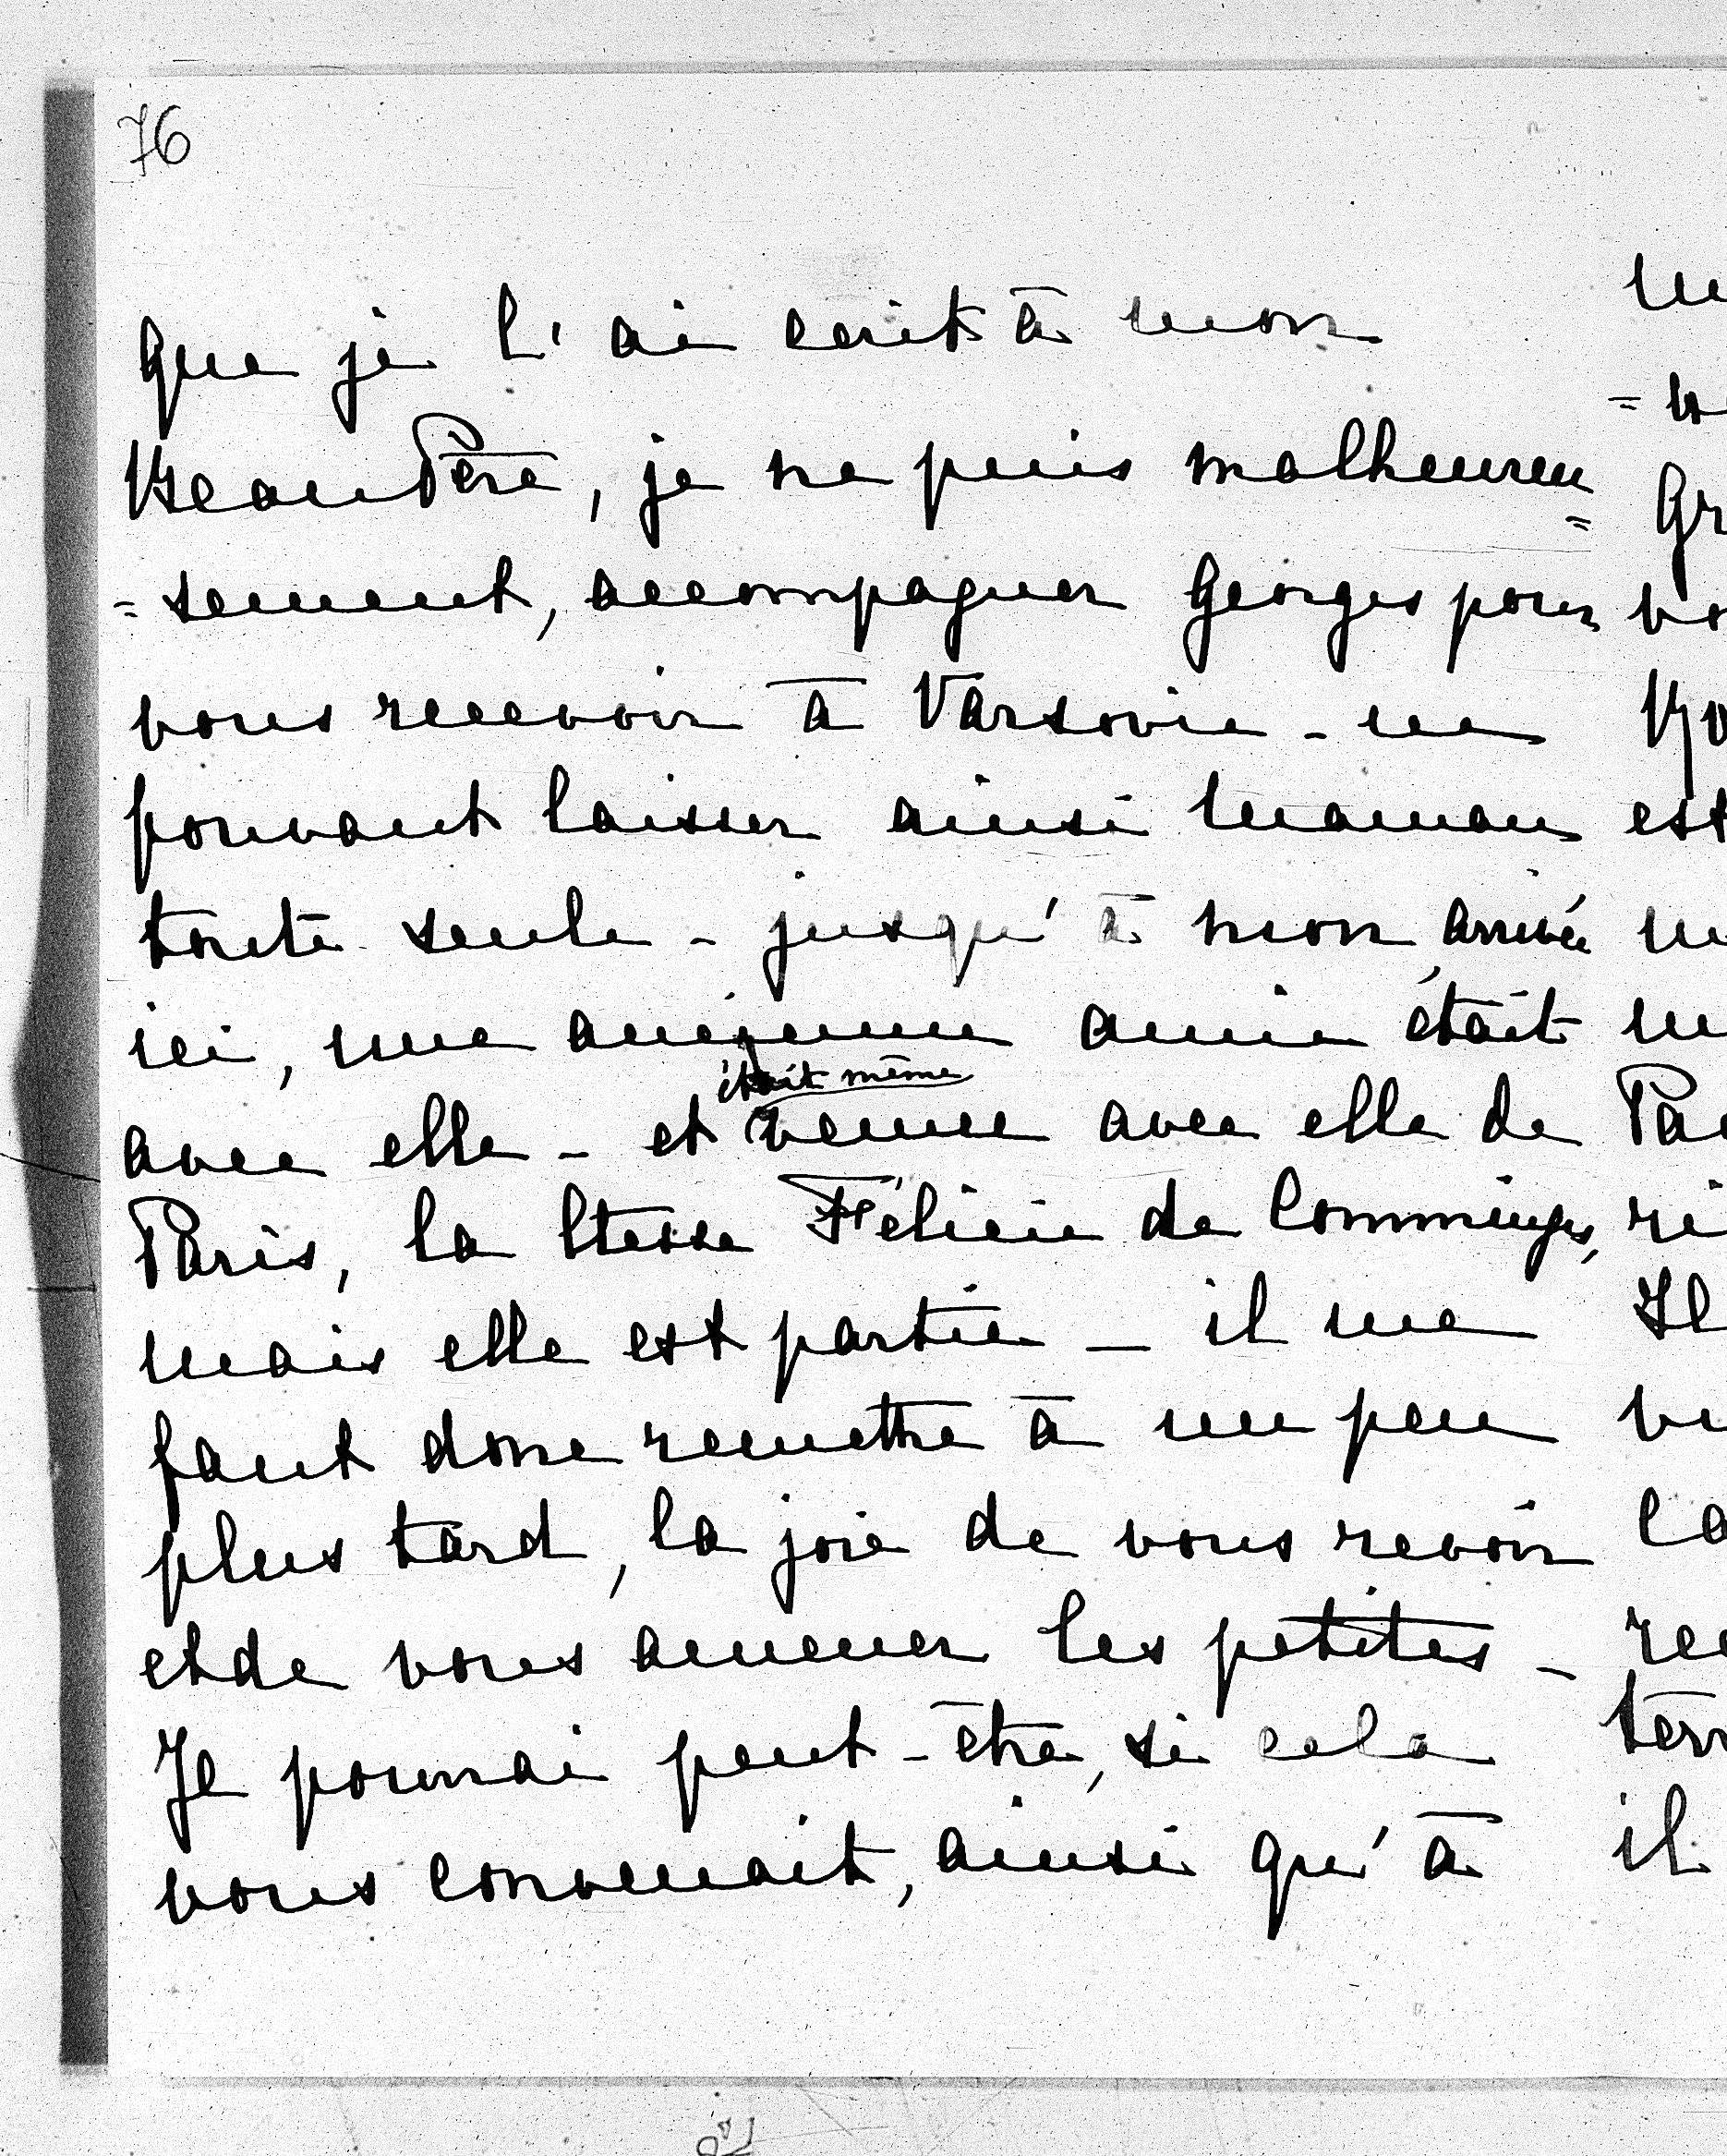 76
que je l'ai écrit à mon
Beau Père, je ne puis malheureu
= sement, accompagner Georges pour
vous recevoir à Varsovie - ne
pouvant laisser ainsi maman
toute seule - jusqu'à mon arrivée
ici, une ancienne amie était
était même
avec elle - et venue avec elle de
Paris, la Ctesse Félicie de Comminges,
mais elle est partie - il me
faut donc remettre à un peu
plus tard, la joie de vous revoir
et de vous amener les petites -
Je pourrai peut-être, si cela
vous convenait, ainsi qu'à